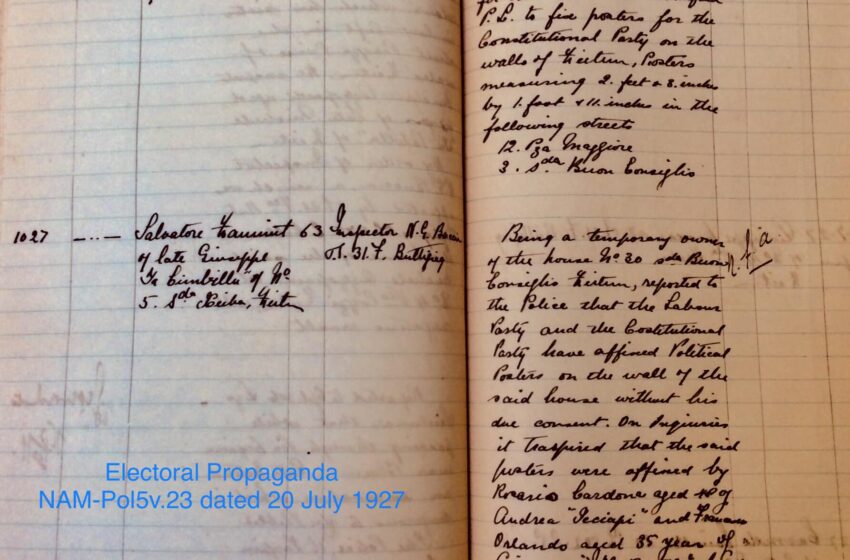 P.L. to fix posters for the
Constitutional Party on the
walls of Zeitun, Posters
measuring 2. feet & 8. inches
by 1. foot & 11. inches in the
following streets
12. Pza Maggiore
3. Sda Buon Consiglio
1027 —..— Salvatore Zammit 63 Inspector N. G.
of late Giuseppe S.P. 31. F. Buttigieg
of No
5. Sda Xeiba, Zeitun
Being a temporary owner
of the house No 30 sda Buon
Consiglio Zeitun, reported to
the Police that the Labour
Party and the Costitutional
Party have affixed Political
Posters on the wall of the
said house without his
due consent. On Inquiries
it traspired that the said
posters were affixed by
Rosario Cardona aged 48 of
Andrea "Peciapi" and Francesco
Orlando aged 35 year of
Electoral Propaganda
NAM-Pol5v.23 dated 20 July 1927